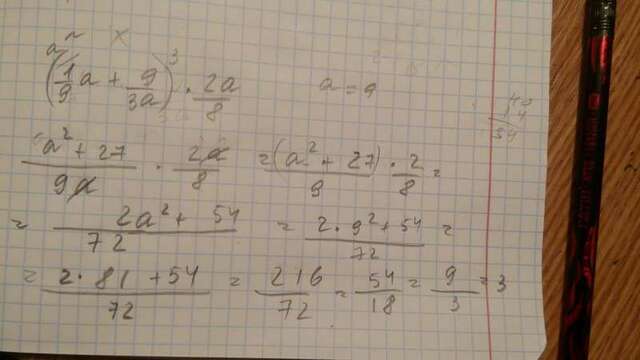 a² x
(1/9 a + 9/3a)³ · 2a/8 a = 9
(a² + 27)/9a · 2a/8 = (a² + 27)/9 · 2/8 =
= (2a² + 54)/72 = (2 · 9² + 54)/72 =
= (2 · 81 + 54)/72 = 216/72 = 54/18 = 9/3 = 3